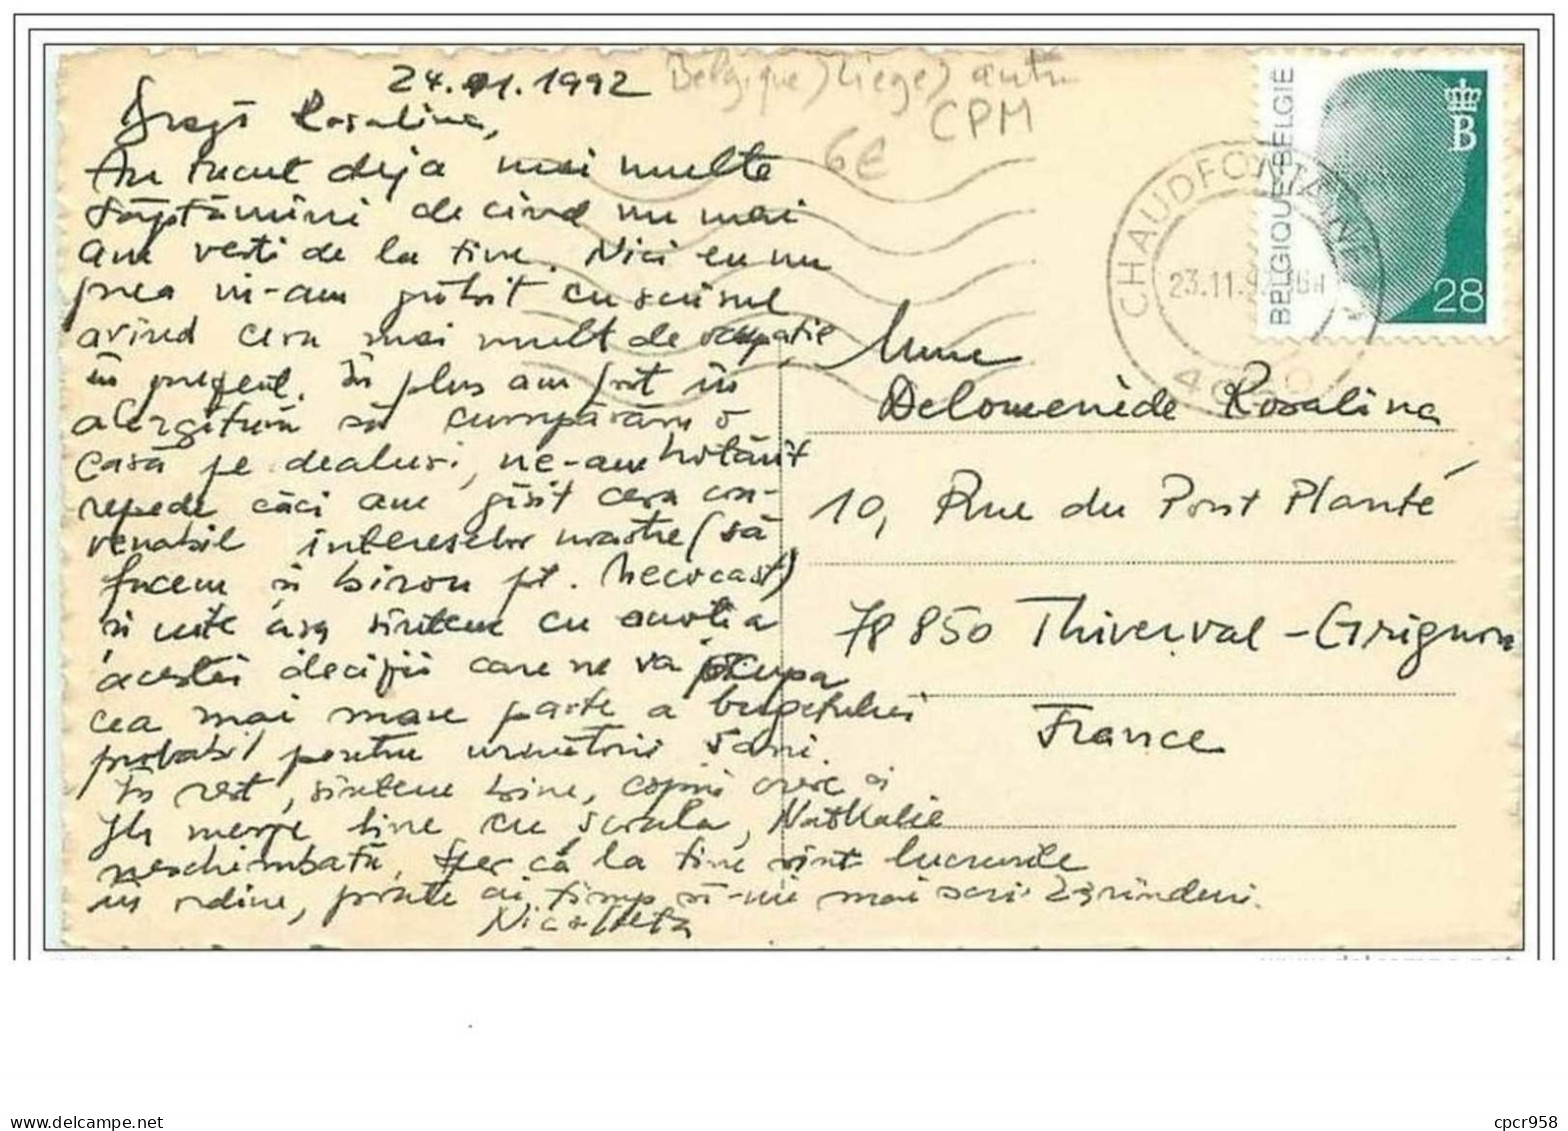 24.11.1992
Belgique) Liege) autr
CPM
6E
Dragă Rosalina,
Au trecut deja mai multe
săptămîni de cînd nu mai
am vesti de la tine. Nici eu nu
prea m-am grăbit cu scrisul
avînd ceva mai mult de ocupatie
în prezent. În plus am fost în
alergătură să cumpărăm o
casă pe dealuri, ne-am hotărît
repede căci am găsit ceva con-
venabil intereselor noastre (să
facem si birou pt.
si uite asa sîntem cu emotia
acestei decizii care ne va ocupa
cea mai mare parte a bugetului
probabil pentru urmatorii 5 ani.
În rest, sîntem bine, copiii cresc si
le merge bine cu scoala, Nathalie
neschimbată. Sper că la tine sînt lucrurile
în ordine, poate ai timp să-mi mai scrii 2-3 rînduri.
Nicoleta
BELGIQUE-BELGIË
B
28
CHAUDFONTAINE
23.11.92
Mme
Delomenède Rosalina
10, Rue du Pont Planté
78 850 Thiverval-Grignon
France
cpcr958